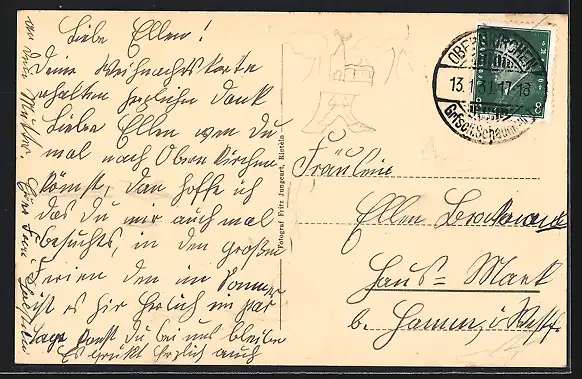 Liebe Ellen!
Deine Weihnachtskarte
erhalten herzlichen Dank
Liebe Ellen wen du
mal nach Obernkirchen
kömst, dan hoffe ich
das du mir auch mal
besuchts, in den großen
Ferien den im Sommer
ist es hir herlich ein par
Tage kanst du bei uns bleiben
Es grüßt herzlich auch
Fotograf Fritz Jungcurt, Rinteln
OBERNKIRCHEN
13.1.31.17-18
Grfsch. Schaumburg
8 8
Fräulein
Ellen
Haus-Mark
b. Hamm, i/Westf.